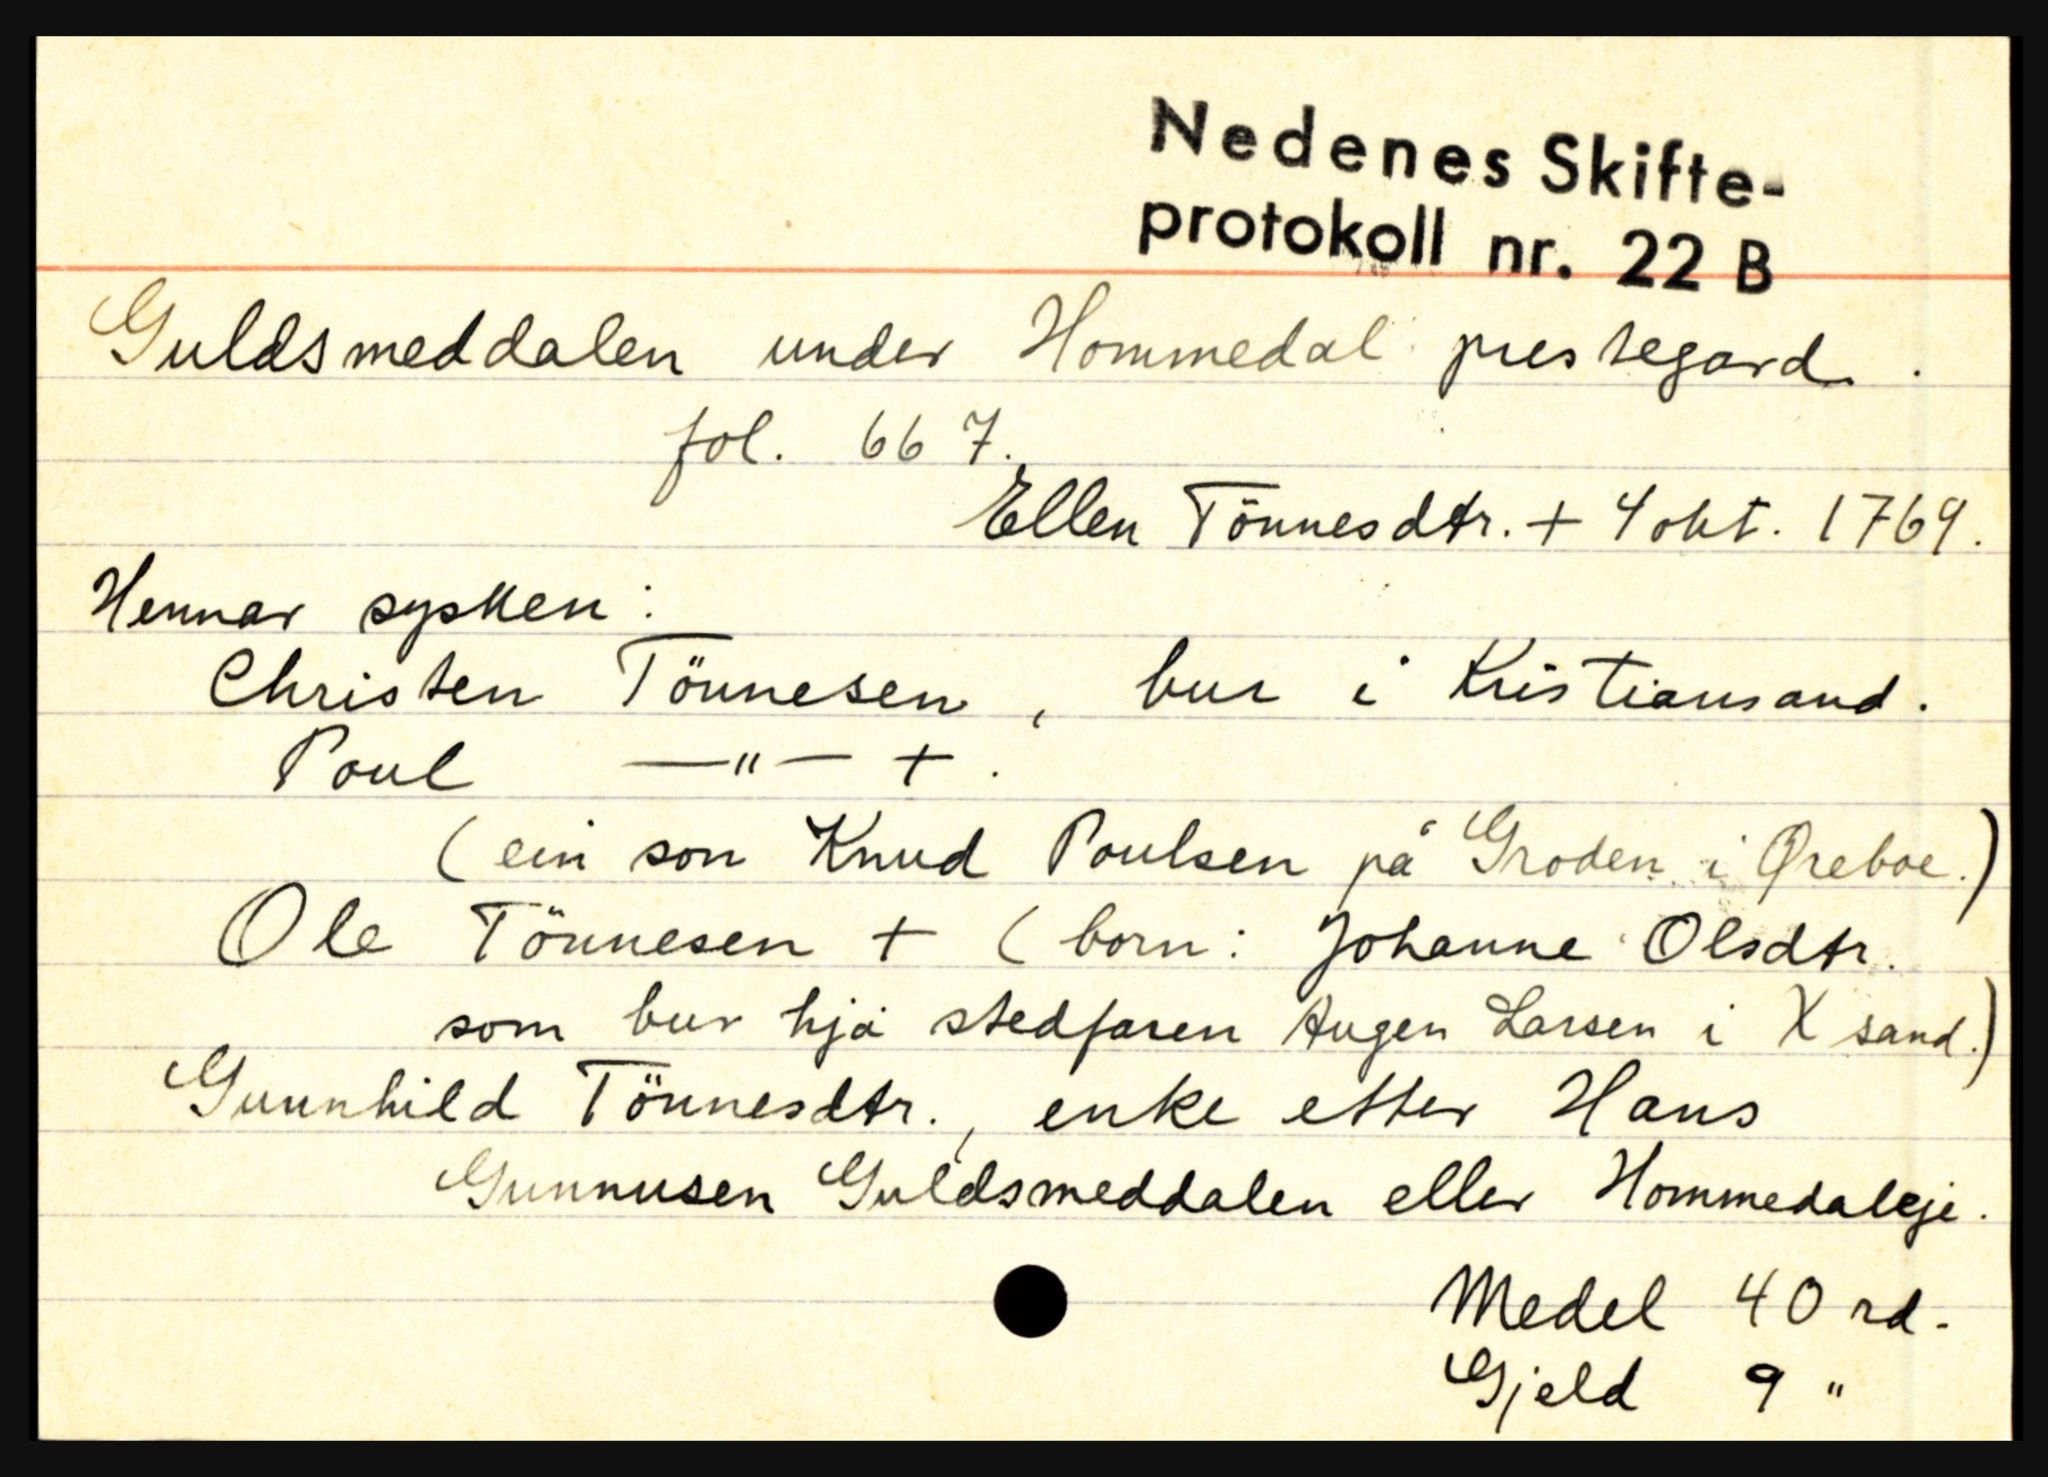 Nedenes Skifte-
protokoll nr. 22 B
Guldsmeddalen under Hommedal prestegard.
fol. 667.
Ellen Tönnesdtr. + 4 okt. 1769.
Hennar sysken:
Christen Tönnesen, bur i Kristiansand.
Poul —"— +.
(ein son Knud Poulsen på Groden i Øreboe.)
Ole Tönnesen + (born: Johanne Olsdtr.
som bur hjå stedfaren Augen Larsen i X sand.)
Gunnhild Tönnesdtr., enke etter Hans
Gunnusen Guldsmeddalen eller Hommedaleje.
Medel 40 rd.
Gjeld 9 "